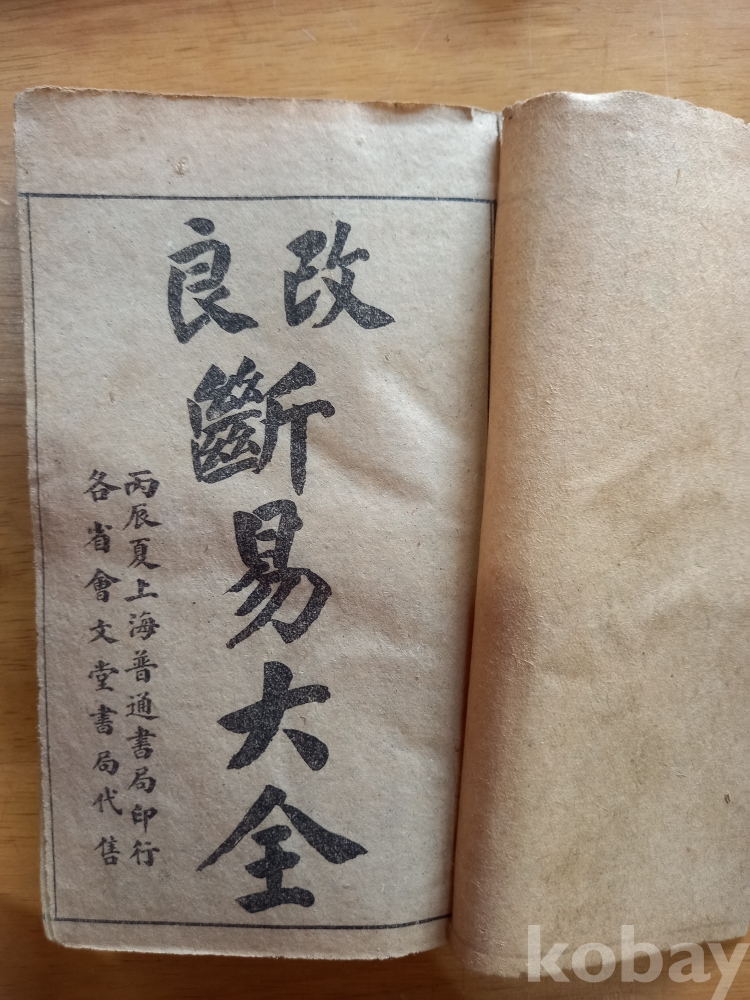 改良
斷易大全
丙辰夏上海普通書局印行
各省會文堂書局代售
kobay